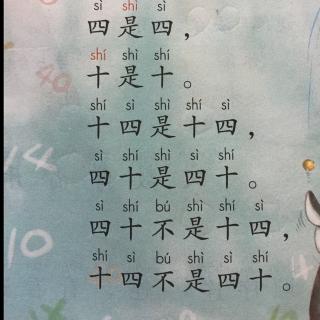 sì shì sì
四是四，
shí shì shí
十是十。
shí sì shì shí sì
十四是十四，
sì shí shì sì shí
四十是四十。
sì shí bú shì shí sì
四十不是十四，
shí sì bú shì sì shí
十四不是四十。
40
14
10
4